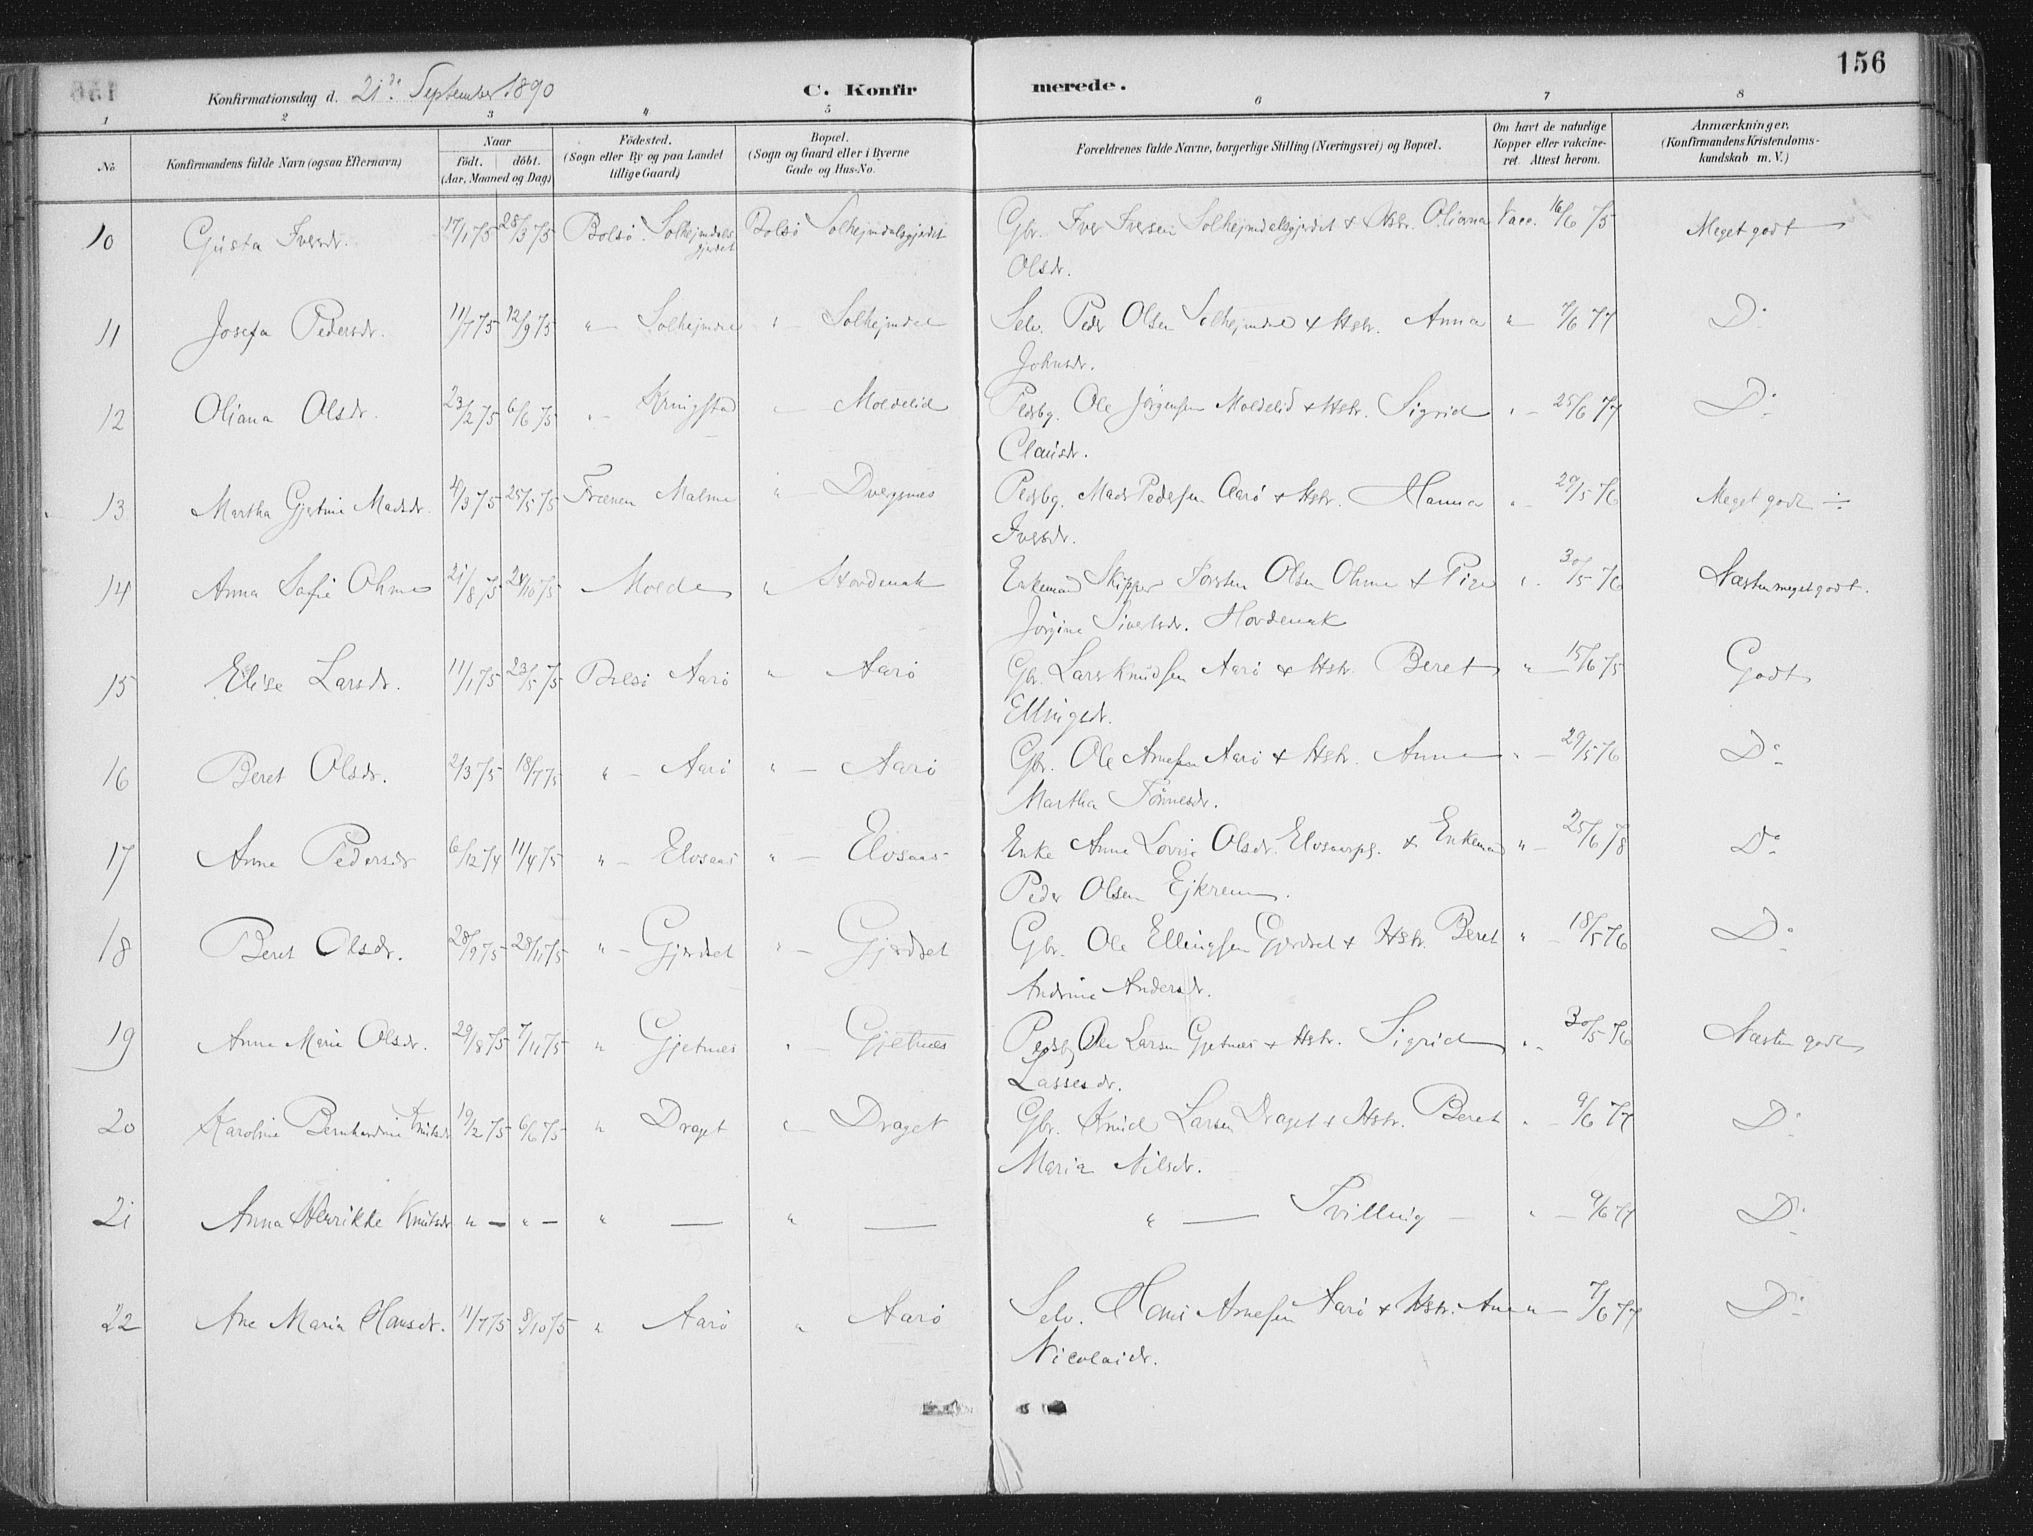 156
Konfirmationsdag d. 21de September 1890 C. Konfirmerede.
1 2 3 4 5 6 7 8
No. Konfirmandens fulde Navn (ogsaa Efternavn) Naar födt. döbt. (Aar, Maaned og Dag) Födested. (Sogn eller By og paa Landet tillige Gaard) Bopæl. (Sogn og Gaard eller i Byerne Gade og Hus-No. Forældrenes fulde Navne, borgerlige Stilling (Næringsvei) og Bopæl. Om havt de naturlige Kopper eller vakcineret. Attest herom. Anmærkninger. (Konfirmandens Kristendomskundskab m. V.)
10 Gusta Iversdr. 17/1 75 28/3 75 Bolsö Solhejmdalsgjerdet Bolsö Solhejmdalsgjerdet Gbr. Iver Iversen Solhejmdalsgjerdet & Hstr. Oliana Vacc. 16/6 75 Meget godt
Olsdr.
11 Josefa Pedersdr. 11/7 75 12/9 75 " — Solhejmdal " — Solhejmdal Selv. Peder Olsen Solhejmdal & Hstr. Anna " — 7/6 77 Do
Johnsdr.
12 Oliana Olsdr. 23/2 75 6/6 75 " — Kringstad " — Moldelid Pedsbg. Ole Jörgensen Moldelid & Hstr. Sigrid " — 25/6 77 Do
Clausdr.
13 Martha Gjertine Madsdr. 4/3 75 25/5 75 Frænen Malme " — Dvergsnes Pedsbg. Mads Pedersen Aarö & Hstr. Hanna " — 29/5 76 Meget godt ÷
Iversdr.
14 Anna Sofie Ohme 21/8 75 24/10 75 Molde " Hovdenak Enkemand Skipper Torsten Olsen Ohme & Pige " 30/5 76 Næsten meget godt.
Jörgine Sivertsdr. Hovdenak
15 Elise Larsdr. 11/1 75 23/5 75 Bolsö Aarö " Aarö Gbr. Lars Knudsen Aarö & Hstr. Beret " — 15/6 75 Godt
Ellingsdr.
16 Beret Olsdr. 2/3 75 18/7 75 " — Aarö " — Aarö Gbr. Ole Arnesen Aarö & Hstr. Anne " — 29/5 76 Do
Martha Tönnesdr.
17 Anne Pedersdr 6/12 74 11/4 75 " — Elvsaas " — Elvsaas Enke Anne Lovise Olsdr. Elvsaarpl. & Enkemand " — 25/6 78 Do
Peder Olsen Ejkrem.
18 Beret Olsdr. 28/9 75 28/11 75 " — Gjerdset " — Gjerdset Gbr. Ole Ellingsen Gjerdset & Hstr. Beret " — 18/5 76 Do
Andrine Andersdr.
19 Anne Marie Olsdr. 29/8 75 7/11 75 " Gjetnes " — Gjetnes Pedsbg Ole Larsen Gjetnes & Hstr. Sigrid " — 30/5 76 Næsten godt
Lassesdr.
20 Karoline Bernhardine Knutsdr 19/2 75 6/6 75 " Draget " — Draget Gbr. Knud Larsen Draget & Hstr. Beret " — 9/6 77 Do
Maria Nilsdr.
21 Anna Henrikke Knutsdr " — " — " — " — " — Tvilling — " — 9/6 77 Do
22 Ane Maria Hansdr. 11/7 75 8/10 75 " Aarö " Aarö Selv. Hans Arnesen Aarö & Hstr. Ane " — 7/6 77 Do
Nicolaidr.